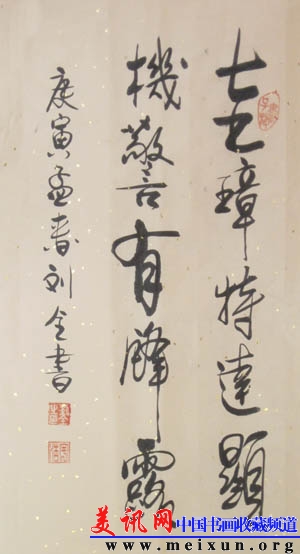 圭璋特達顯
機警有鋒露
庚寅孟春刘全書
美讯网
中国书画收藏频道
www.meixun.org